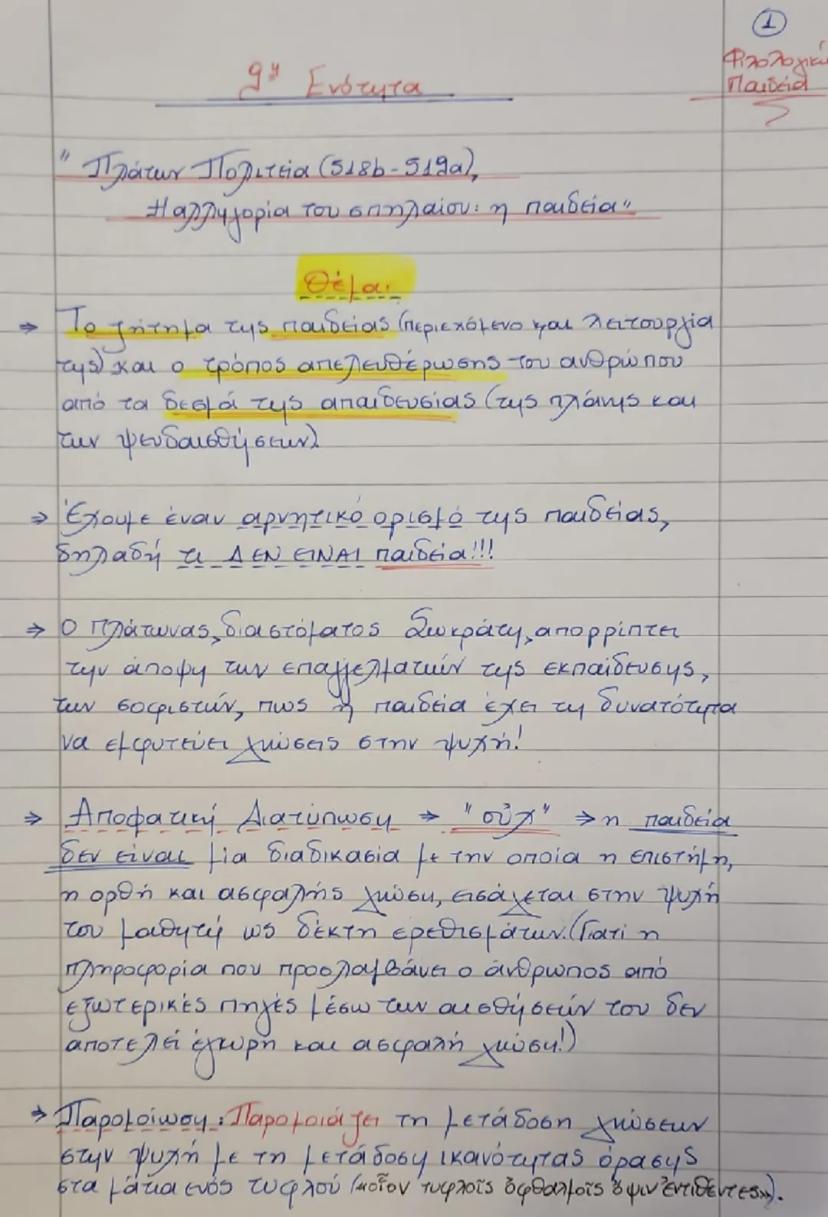 ①
Φιλολογική
Παιδεία
9η Ενότητα
"Πλάτων Πολιτεία (518b-519a),
Η αλληγορία του σπηλαίου: η παιδεία"
Θέμα:
⇒ Το ζήτημα της παιδείας (περιεχόμενο και λειτουργία
της) και ο τρόπος απελευθέρωσης του ανθρώπου
από τα δεσμά της απαιδευσίας (της πλάνης και
των ψευδαισθήσεων).
⇒ Έχουμε έναν αρνητικό ορισμό της παιδείας,
δηλαδή τι ΔΕΝ ΕΙΝΑΙ παιδεία!!!
⇒ Ο Πλάτωνας, διαστόματος Σωκράτη, απορρίπτει
την άποψη των επαγγελματιών της εκπαίδευσης,
των σοφιστών, πως ἡ παιδεία έχει τη δυνατότητα
να εμφυτεύει γνώσεις στην ψυχή!
⇒ Αποφατική Διατύπωση → "οὐχ" ⇒ η παιδεία
δεν είναι μία διαδικασία με την οποία η επιστήμη,
η ορθή και ασφαλής γνώση, εισάγεται στην ψυχή
του μαθητή ως δέκτη ερεθισμάτων. (Γιατί η
πληροφορία που προσλαμβάνει ο άνθρωπος από
εξωτερικές πηγές μέσω των αισθήσεών του δεν
αποτελεί έγκυρη και ασφαλή γνώση!)
⇒ Παρομοίωση: Παρομοιάζει τη μετάδοση γνώσεων
στην ψυχή με τη μετάδοση ικανότητας όρασης
στα μάτια ενός τυφλού («οἷον τυφλοῖς ὀφθαλμοῖς ὄψιν ἐντιθέντες»).